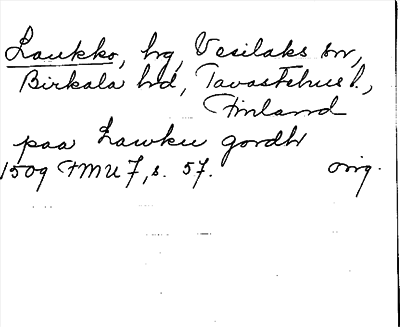 Laukko, hg, Vesilaks sn,
Birkala hd, Tavastehus l.,
Finland
paa Lawku gordh
1509 FMU 7, s. 57. orig.